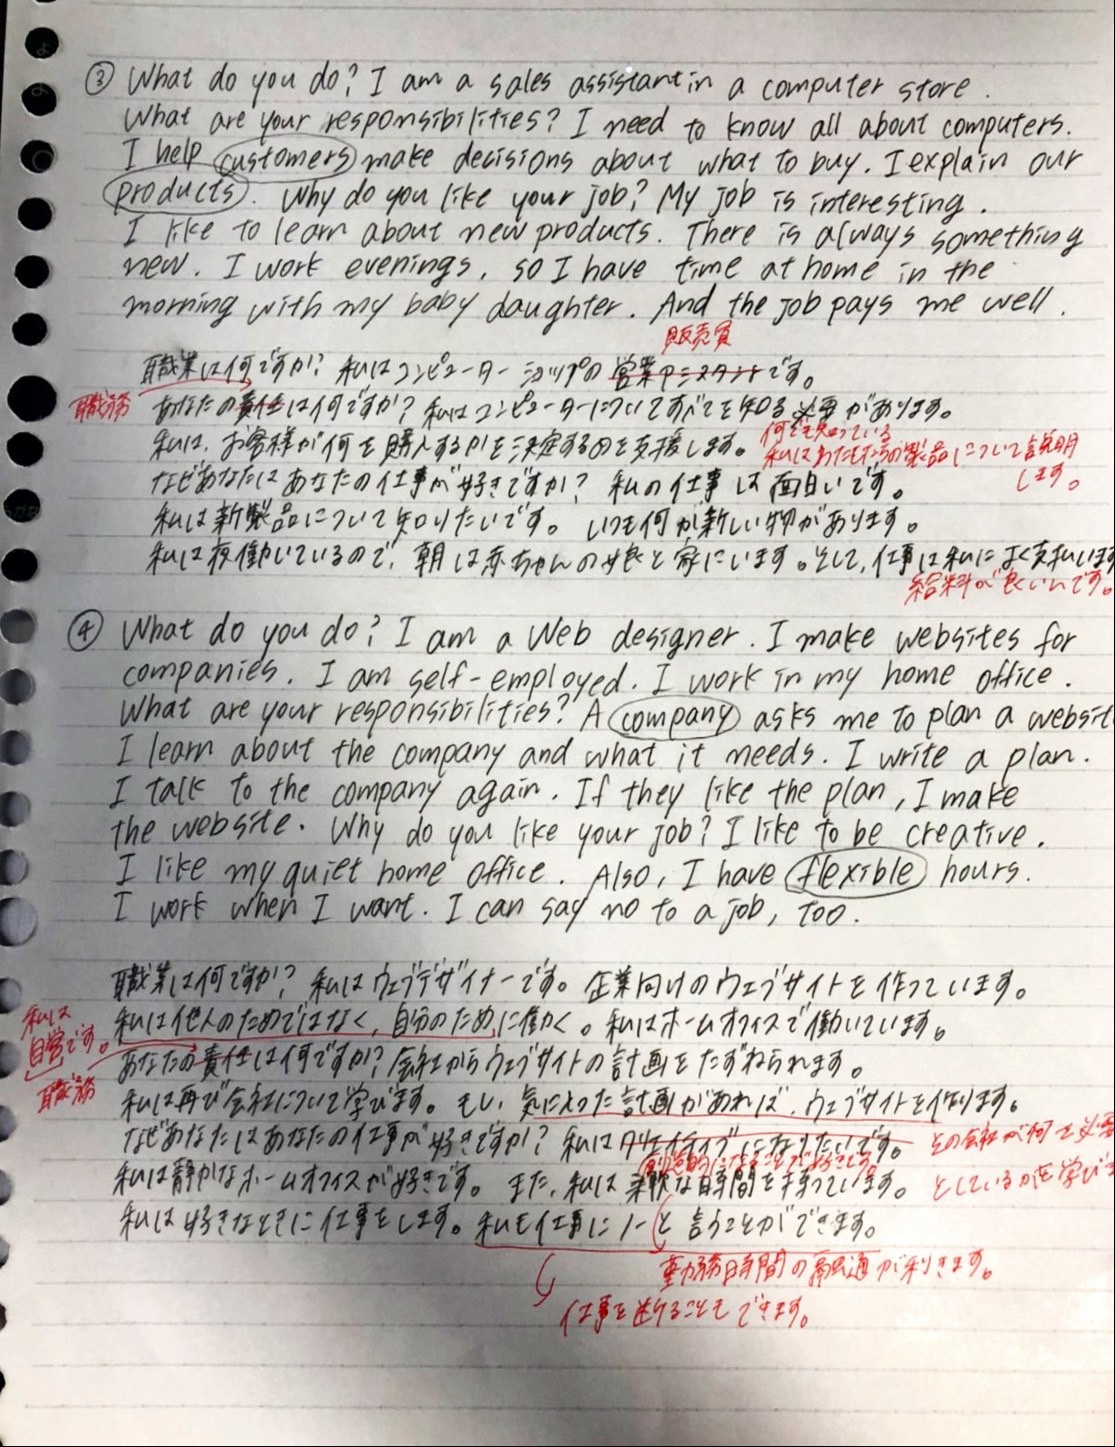 ③ What do you do? I am a sales assistant in a computer store.
What are your responsibilities? I need to know all about computers.
I help customers make decisions about what to buy. I explain our
products. Why do you like your job? My job is interesting.
I like to learn about new products. There is always something
new. I work evenings, so I have time at home in the
morning with my baby daughter. And the job pays me well.
販売員
職業は何ですか? 私はコンピューターショップの営業アシスタントです。
職務
あなたの責任は何ですか? 私はコンピューターについてすべてを知る必要があります。
何でも知っている
私は、お客様が何を購入するかを決定するのを支援します。
私はわたしたちの製品について説明
します。
なぜあなたはあなたの仕事が好きですか? 私の仕事は面白いです。
私は新製品について知りたいです。 いつも何か新しい物があります。
私は夜働いているので、朝は赤ちゃんの娘と家にいます。そして、仕事は私によく支払います
給料が良いんです。
④ What do you do? I am a Web designer. I make websites for
companies. I am self-employed. I work in my home office.
What are your responsibilities? A company asks me to plan a websit
I learn about the company and what it needs. I write a plan.
I talk to the company again. If they like the plan, I make
the website. Why do you like your job? I like to be creative.
I like my quiet home office. Also, I have flexible hours.
I work when I want. I can say no to a job, too.
職業は何ですか? 私はウェブデザイナーです。企業向けのウェブサイトを作っています。
私は
自営です。
私は他人のためではなく、自分のために働く。私はホームオフィスで働いています。
あなたの責任は何ですか? 会社からウェブサイトの計画をたずねられます。
職務
私は再び会社について学びます。もし、気に入った計画があれば、ウェブサイトを作ります。
なぜあなたはあなたの仕事が好きですか? 私はクリエイティブになりたいです。
その会社が何を必要
としているかを学びま
私は静かなホームオフィスが好きです。 また、私は柔軟な時間を持っています。
私は好きなときに仕事をします。私も仕事にノーと言うことができます。
勤務時間の融通が利きます。
仕事を避けることもできます。